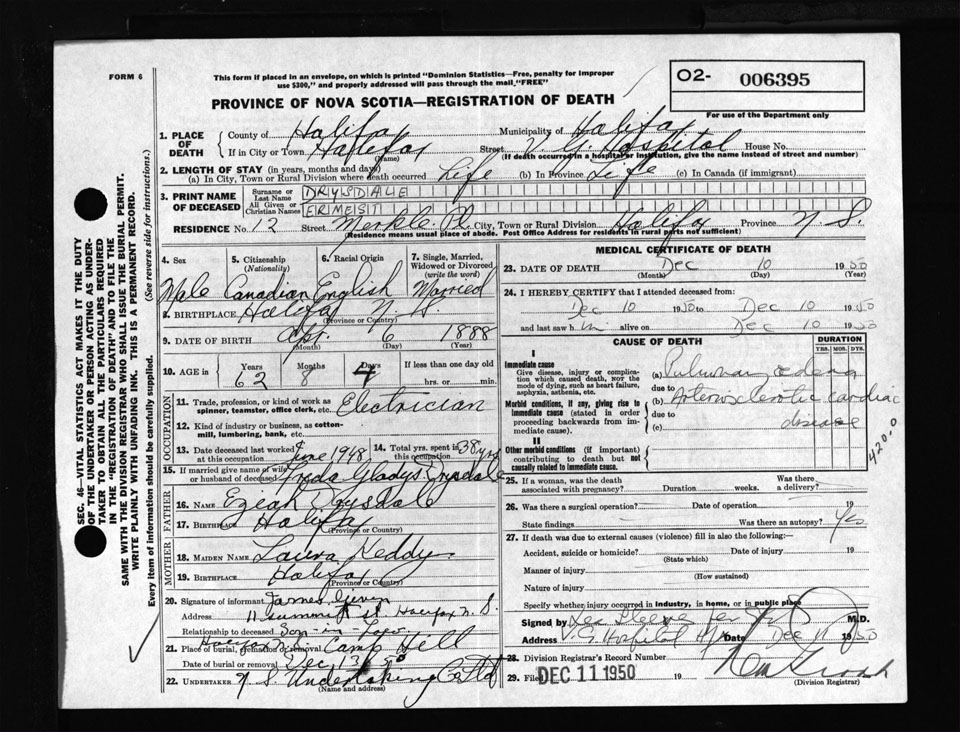 FORM 6
This form if placed in an envelope, on which is printed "Dominion Statistics—Free, penalty for improper
use $300," and properly addressed will pass through the mail "FREE"
O2- 006395
For use of the Department only
PROVINCE OF NOVA SCOTIA—REGISTRATION OF DEATH
1. PLACE OF DEATH
County of Halifax Municipality of Halifax
If in City or Town Halifax (Name) Street V. G. Hospital House No.
(If death occurred in a hospital or institution, give the name instead of street and number)
2. LENGTH OF STAY (in years, months and days)
(a) In City, Town or Rural Division where death occurred Life (b) In Province Life (c) In Canada (if immigrant)
3. PRINT NAME OF DECEASED
Surname or Last Name DRYSDALE
All Given or Christian Names ERMEST
RESIDENCE No. 12 Street Merkle Pl. City, Town or Rural Division Halifax Province N S.
(Residence means usual place of abode. Post Office Address for residents in rural parts not sufficient)
4. Sex
5. Citizenship (Nationality)
6. Racial Origin
7. Single, Married, Widowed or Divorced (write the word)
Male Canadian English Married
8. BIRTHPLACE Halifax N. S.
(Province or Country)
9. DATE OF BIRTH Apr. 6 1888
(Month) (Day) (Year)
10. AGE in Years Months Days If less than one day old
62 8 4 hrs. or min.
OCCUPATION
11. Trade, profession, or kind of work as
spinner, teamster, office clerk, etc. Electrician
12. Kind of industry or business, as cotton-
mill, lumbering, bank, etc.
13. Date deceased last worked at this occupation June 1948
14. Total yrs. spent in this occupation 38 yrs
15. If married give name of wife or husband of deceased Gladys Drysdale
FATHER
16. Name Drysdale
17. BIRTHPLACE Halifax
(Province or Country)
MOTHER
18. MAIDEN NAME Laura Keddy
19. BIRTHPLACE Halifax
(Province or Country)
20. Signature of informant James
Address 11 Summit St. Halifax N. S.
Relationship to deceased Son-in-Law
21. Place of burial, cremation or removal Camp Hill
Date of burial or removal Dec 13/50
22. UNDERTAKER N. S. Undertaking Co Ltd
(Name and address)
MEDICAL CERTIFICATE OF DEATH
23. DATE OF DEATH Dec 10 1950
(Month) (Day) (Year)
24. I HEREBY CERTIFY that I attended deceased from:
Dec 10 1950 to Dec 10 1950
and last saw him alive on Dec 10 1950
CAUSE OF DEATH
DURATION
YRS. MOS. DYS.
I
Immediate cause
Give disease, injury or compli-
cation which caused death, NOT the
mode of dying, such as heart failure,
asphyxia, asthenia, etc.
(a) Pulmonary edema
due to
Morbid conditions, if any, giving rise to
immediate cause (stated in order
proceeding backwards from im-
mediate cause).
(b) Arteriosclerotic cardiac
due to
(c) disease
420.0
II
Other morbid conditions (if important)
contributing to death but not
causally related to immediate cause.
25. If a woman, was the death
associated with pregnancy? Duration weeks. Was there a delivery?
26. Was there a surgical operation? Date of operation 19
State findings Was there an autopsy? Yes
27. If death was due to external causes (violence) fill in also the following:—
Accident, suicide or homicide? Date of injury 19
(State which)
Manner of injury
(How sustained)
Nature of injury
Specify whether injury occurred in industry, in home, or in public place
Signed by M.D.
Address V. G. Hospital Date Dec 11 1950
28. Division Registrar's Record Number
29. Filed DEC 11 1950 19
(Division Registrar)
SEC. 46—VITAL STATISTICS ACT MAKES IT THE DUTY
OF THE UNDERTAKER OR PERSON ACTING AS UNDER-
TAKER TO OBTAIN ALL THE PARTICULARS REQUIRED
IN THE "REGISTRATION OF DEATH" AND TO FILE THE
SAME WITH THE DIVISION REGISTRAR WHO SHALL ISSUE THE BURIAL PERMIT.
WRITE PLAINLY WITH UNFADING INK. THIS IS A PERMANENT RECORD.
Every item of information should be carefully supplied. (See reverse side for instructions.)